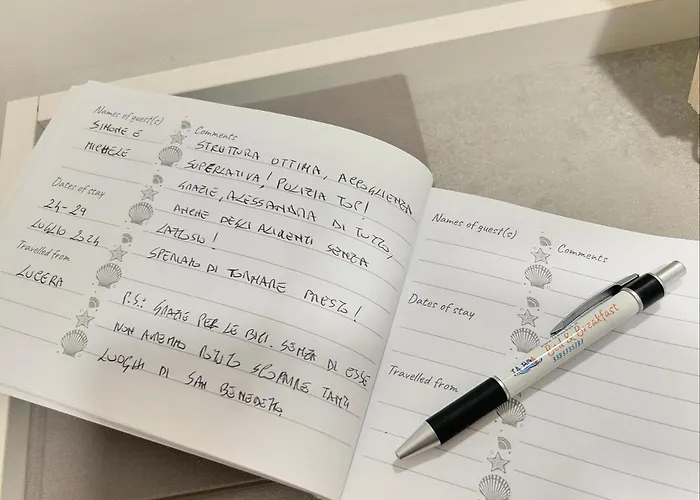 Names of guest(s)
SIMONE E
MICHELE
Dates of stay
24-29
LUGLIO 2024
Travelled from
LUCERA
Comments
STRUTTURA OTTIMA, ACCOGLIENZA
SUPERLATIVA! PULIZIA TOP!
GRAZIE, ALESSANDRA DI TUTTO,
ANCHE DEGLI ALIMENTI SENZA
LATTOSIO!
SPERIAMO DI TORNARE PRESTO!
P.S.: GRAZIE PER LE BICI. SENZA DI ESSE
NON AVREMMO POTUTO SCOPRIRE TANTI
LUOGHI DI SAN BENEDETTO
Names of guest(s)
Dates of stay
Travelled from
Comments
Bed & Breakfast